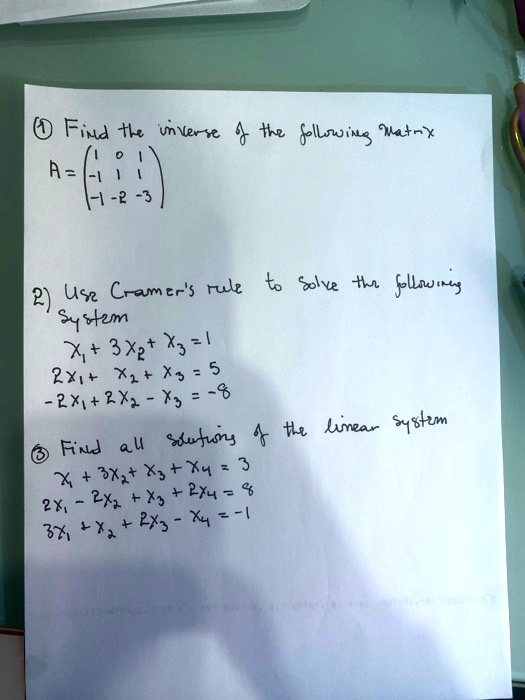 ① Find the inverse of the following Matrix
A = ( 1 0 1
-1 1 1
-1 -2 -3 )
2) Use Cramer's rule to solve the following
System
x₁ + 3x₂ + x₃ = 1
2x₁ + x₂ + x₃ = 5
-2x₁ + 2x₂ - x₃ = -8
③ Find all solutions of the linear system
x₁ + 3x₂ + x₃ + x₄ = 3
2x₁ - 2x₂ + x₃ + 2x₄ = 8
3x₁ + x₂ + 2x₃ - x₄ = -1